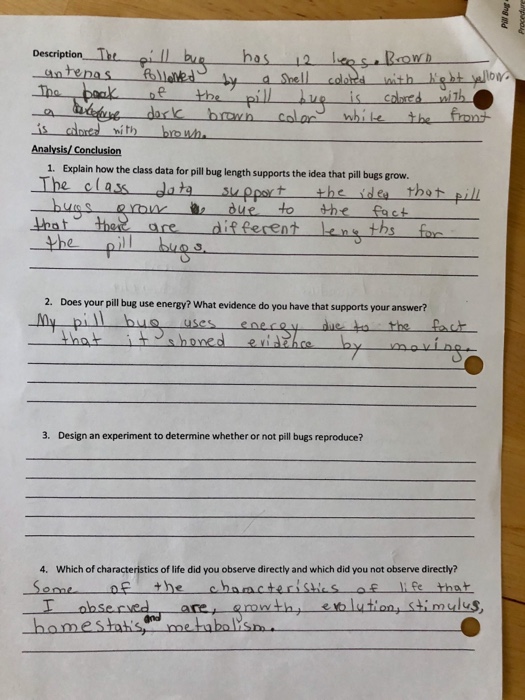 Pill Bug
Procedure
Description The pill bug has 12 legs. Brown
antenas followed by a shell colored with light yellow.
The back of the pill bug is colored with
a dark brown color while the front
is colored with brown.
Analysis/ Conclusion
1. Explain how the class data for pill bug length supports the idea that pill bugs grow.
The class data support the idea that pill
bugs grow due to the fact
that there are different lengths for
the pill bugs.
2. Does your pill bug use energy? What evidence do you have that supports your answer?
My pill bug uses energy due to the fact
that it shoned evidence by moving.
3. Design an experiment to determine whether or not pill bugs reproduce?
4. Which of characteristics of life did you observe directly and which did you not observe directly?
Some of the characteristics of life that
I observed are, growth, evolution, stimulus,
homestatis, and metabolism.